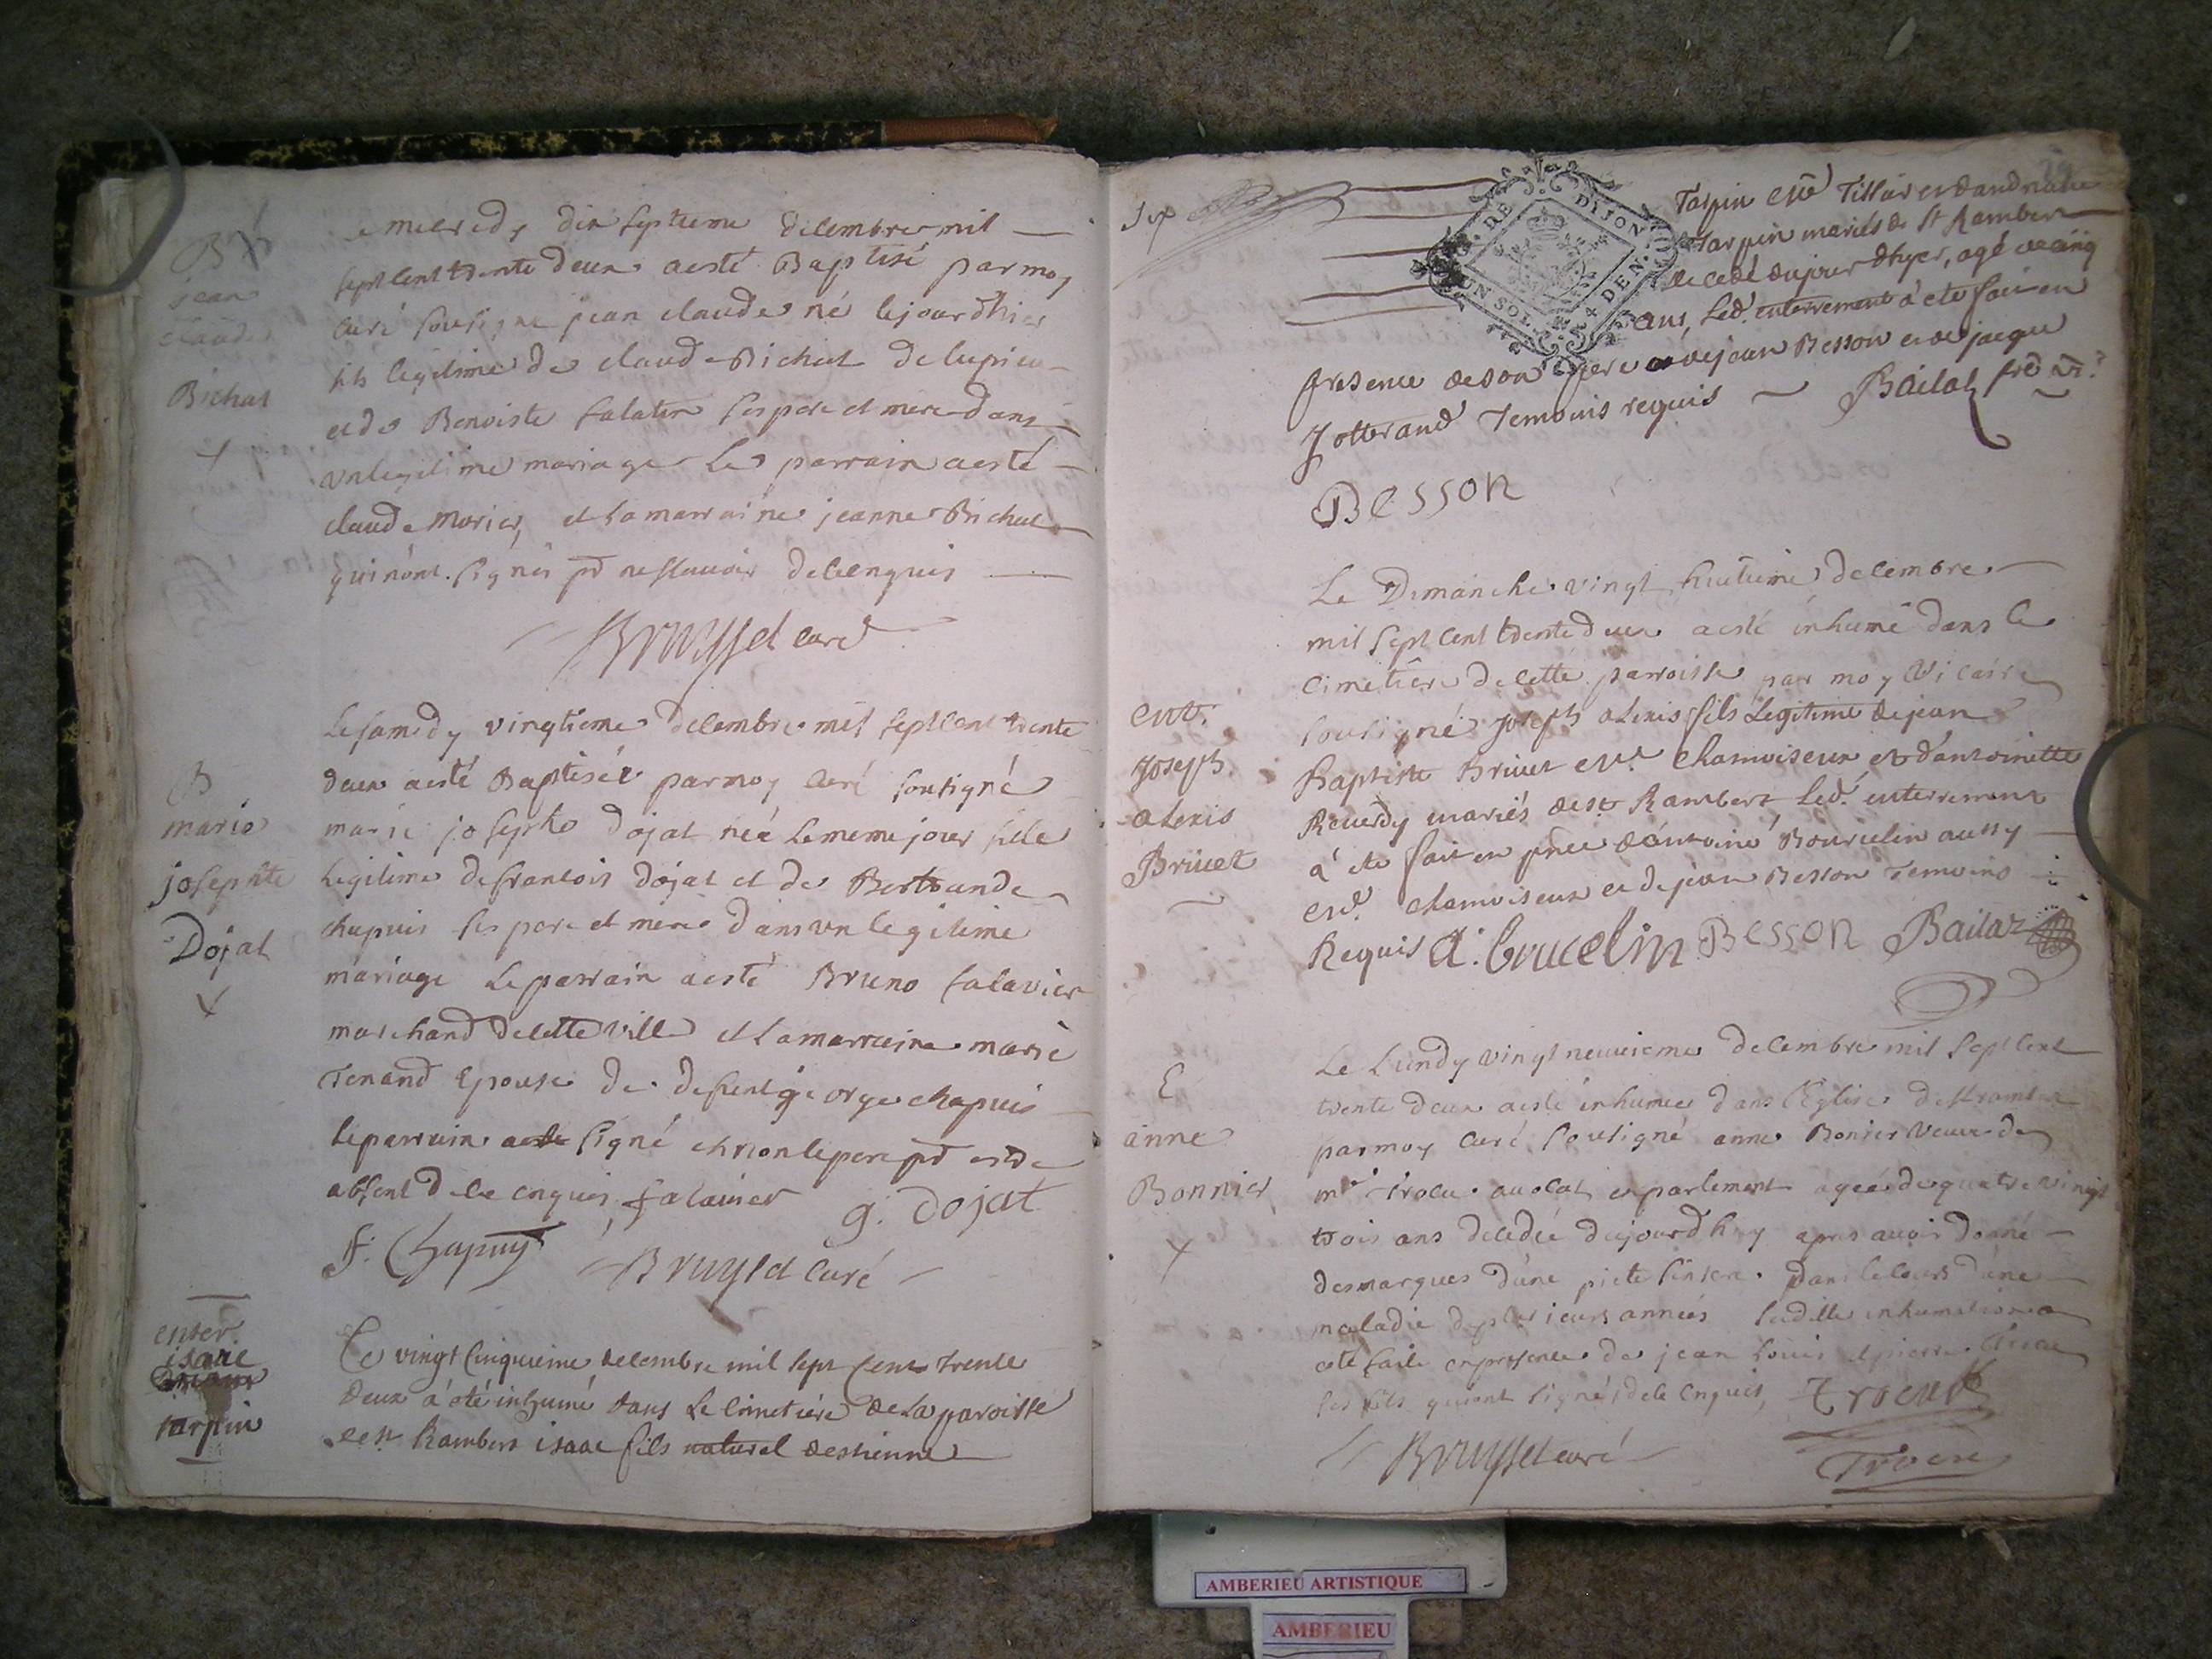 B
jean
claude
Bichat
mecredy dix septieme decembre mil
sept cent trente deux a esté Baptisé par moy
curé sousigne jean claude né le jour d'hier
fils legitime de claude Bichat
et de Benoiste ses pere et mere dans
un legitime mariage Le parrain a esté
claude morier, et la marraine jeanne Bichat
qui n'ont signés pr ne sçauoir de ce enquis
Bruysset curé
B
marie
josephte
Dojat
Le samedy vingtieme decembre mil sept cent trente
deux a esté Baptisée par moy curé sousigné
marie josephte dojat née le meme jour fille
legitime de francois dojat et de Bertrande
chapuis ses pere et mere dans un legitime
mariage Le parrain a esté Bruno falavier
marchand de cette ville et la marraine marie
Tenand Epouse de defunt george chapuis
le parrain a signé et non le pere pr estre
absent de ce enquis falavier g. Dojat
f. Chapuy Bruysset curé
enter.
isaac
tarpin
Ce vingt cinquieme decembre mil sept cent trente
deux a été inhumé dans le cimetiére de la paroisse
de st Rambert isaac fils naturel destienne
RE DIJON
UN SOL DEN.
Tarpin Tissier et
Tarpin mariés de St Rambert
decedé du jour dhyer, agé de cinq
ans, Led. enterrement a ete fait en
presence de son pere de jean Besson et de jacque
Jotterand Temoins requis Bailat
Besson
ent.
Joseph
alexis
Brivet
Le Dimanche vingt huitieme decembre
mil sept cent trente deux a esté inhumé dans le
cimetiére de cette parroisse par moy Vicaire
sousigné Joseph alexis fils legitime de jean
Baptiste Brivet chamoiseur et d'antoinette
Reverdy mariés de st Rambert led. enterrement
a été fait en pnce d'antoine Bourcelin aussy
chamoiseur et de jean Besson Temoins
Requis Besson Bailat
E
anne
Bonnier
Le Lundy vingt neuvieme decembre mil sept cent
trente deux a esté inhumee dans l'Eglise de st rambert
par moy curé sousigné anne Bonier veuve de
mre Trocu auocat en parlement agée de quatre vingt
trois ans decedée d'aujourd'huy apres auoir donné
des marques d'une pieté sincere dans le cours d'une
maladie de plusieurs années ladite inhumation a
eté faite en presence de jean louis et pierre Trocu
ses fils qui ont signés de ce enquis, Trocu
Bruysset curé Trocu
AMBERIEU ARTISTIQUE
AMBERIEU